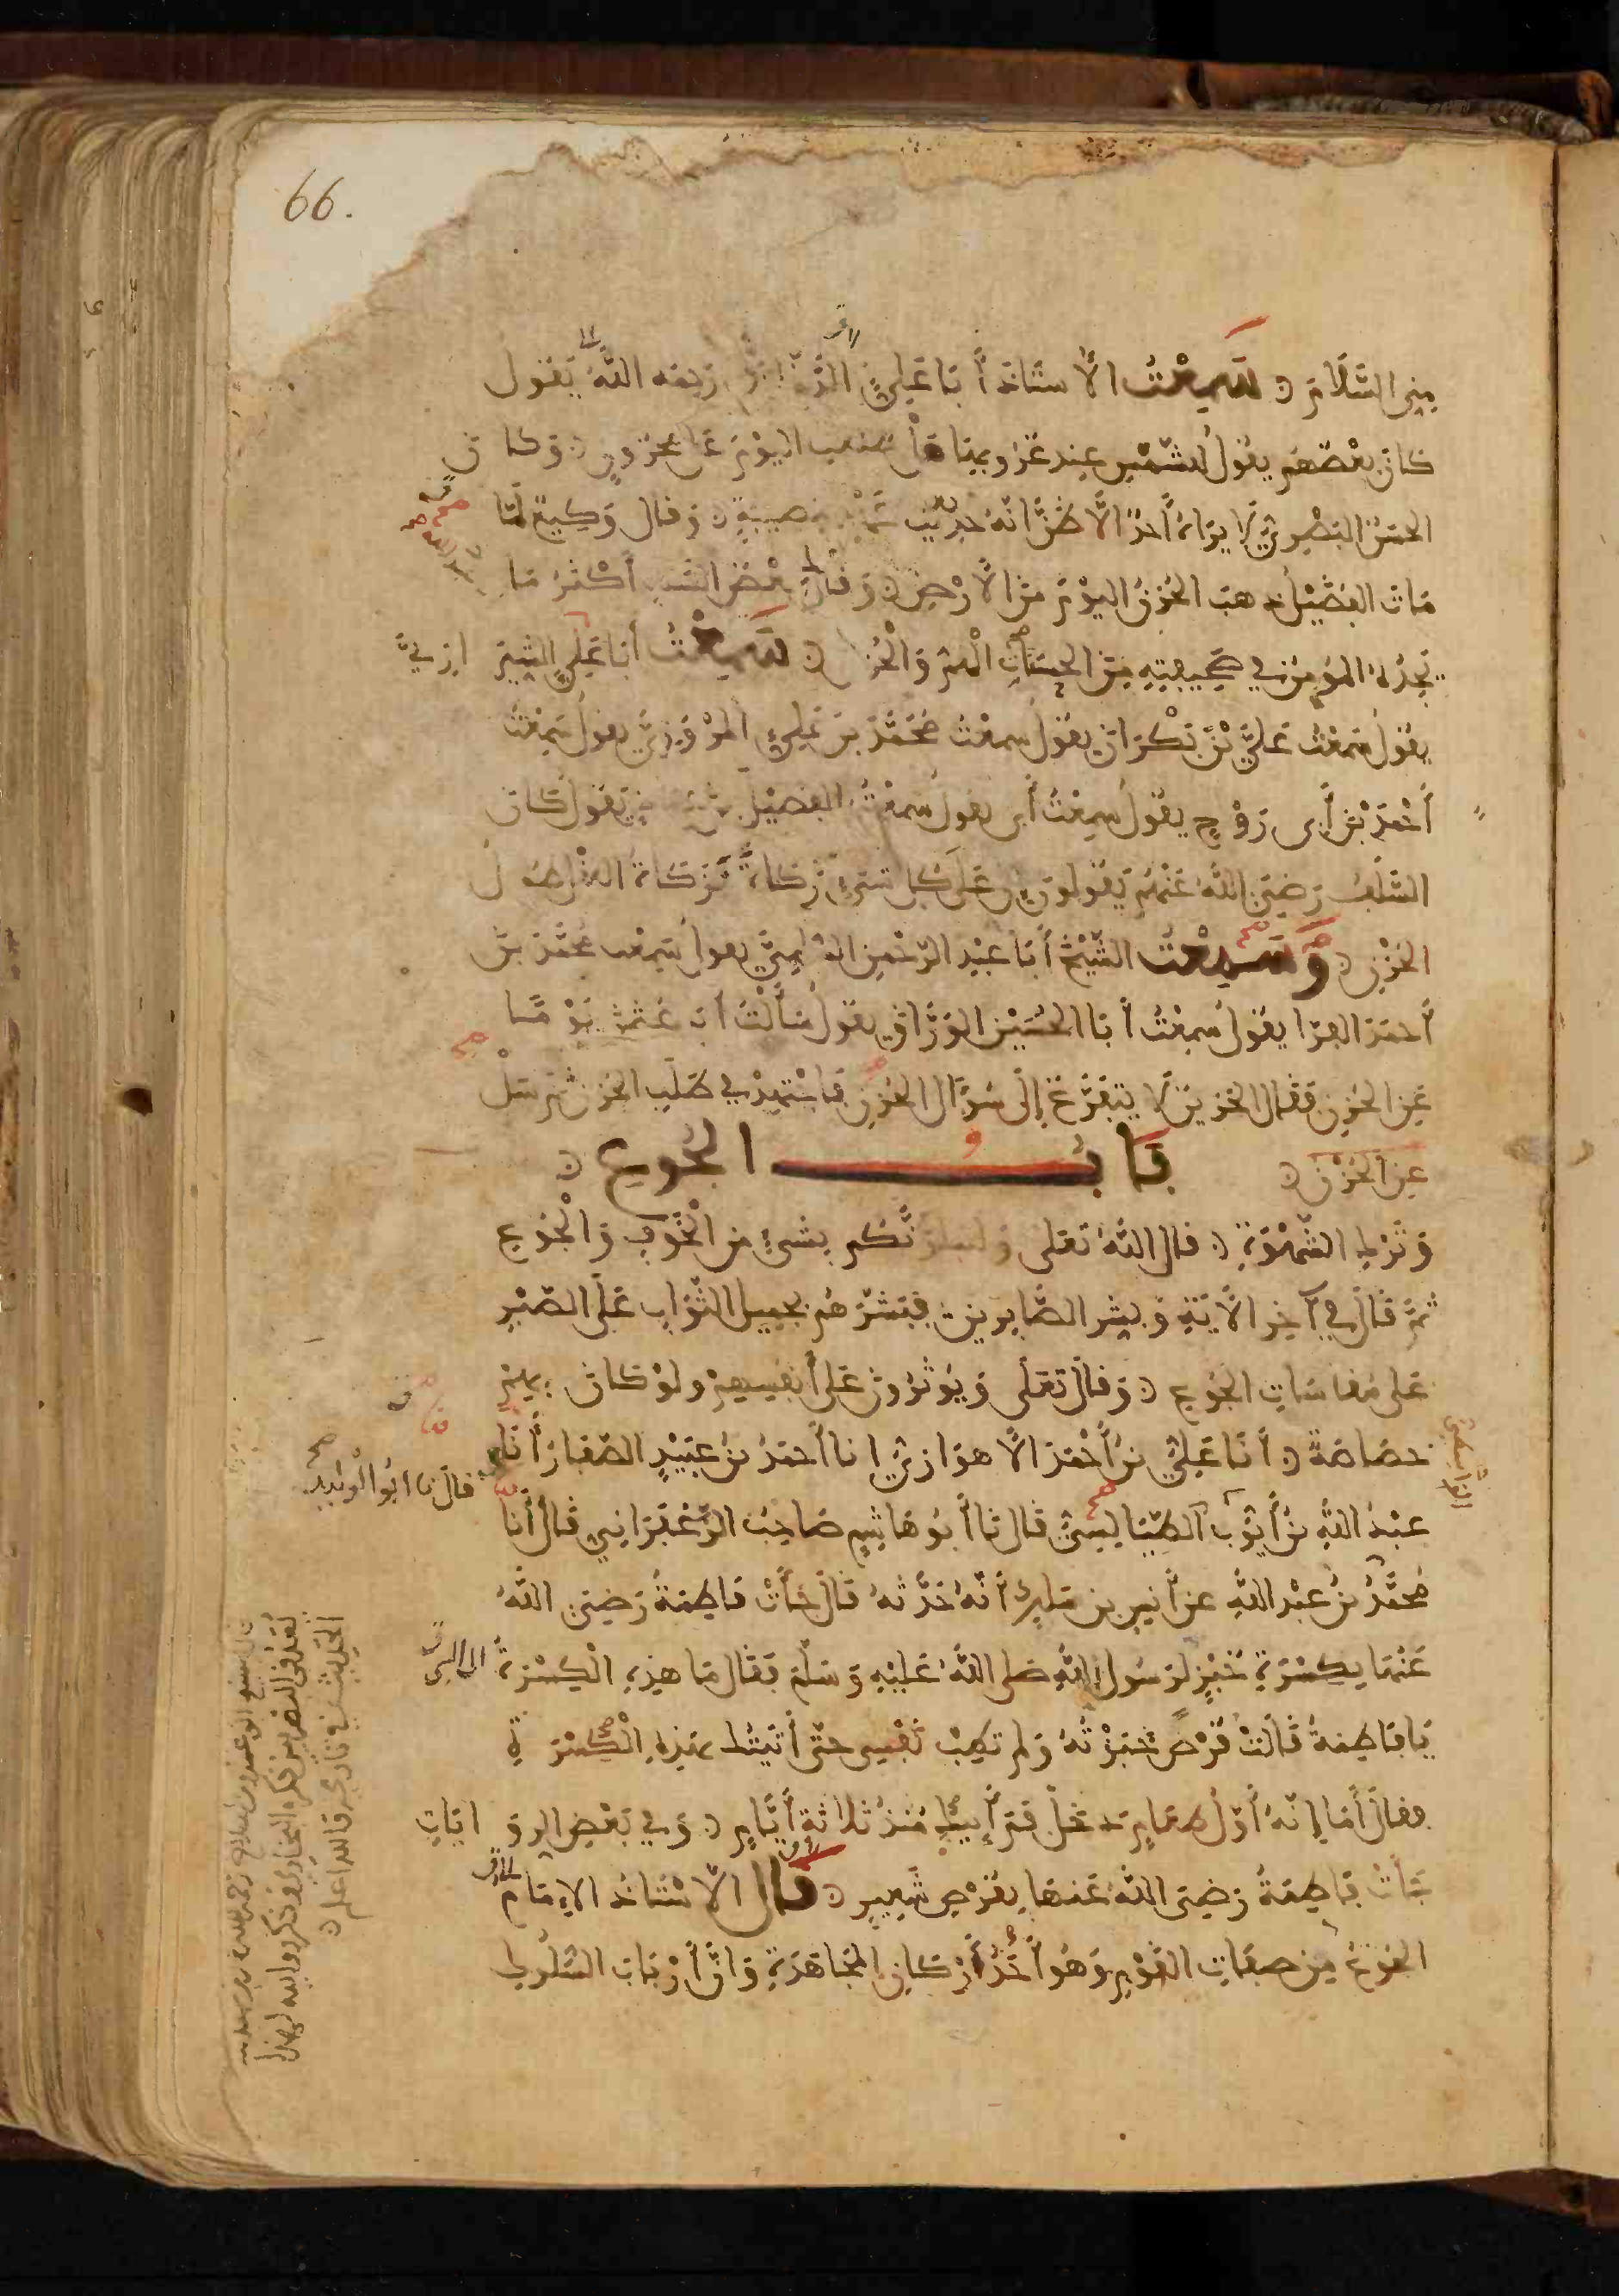 66.
مني السلام ٥ سمعت الاستاذ أبا علي الدقاق رحمه الله يقول
كان بعضهم يقول لشمس عند غروبها هل طلعت اليوم على محزون ٥ وكان
الحسن البصري لا يراه أحد الا ظن انه حديث بمصيبة ٥ وقال وكيع لما
مات الفضيل ذهب الحزن اليوم من الارض ٥ وقال بعض السلف أكثر ما
يجده المؤمن في صحيفته من الحسنات الهم والحزن ٥ سمعت أبا علي الشيرازي
يقول سمعت علي بن بكران يقول سمعت محمد بن علي المروزي يقول سمعت
أحمد بن أبي روح يقول سمعت أبي يقول سمعت الفضيل بن عياض يقول كان
السلف رضي الله عنهم يقولون ان على كل شيء زكاة وزكاة العقل طول
الحزن ٥ وسمعت الشيخ أبا عبد الرحمن السلمي يقول سمعت محمد بن
أحمد الفرا يقول سمعت أبا الحسين الوراق يقول سألت أبا عثمن يوما
عن الحزن فقال الحزين لا يتفرغ إلى سؤال الحزن فاجتهد في طلب الحزن ثم سل
عن الحزن ٥ باب الجوع ٥
وترك الشهوة ٥ قال الله تعلى ولنبلونكم بشيء من الخوف والجوع
ثم قال في آخر الآية وبشر الصابرين فبشرهم بجميل الثواب على الصبر
على مقاسات الجوع ٥ وقال تعلى ويوثرون على أنفسهم ولو كان بهم
خصاصة ٥ أنا علي بن أحمد الاهوازي انا أحمد بن عبيد الصفار أنا
قال نا ابو الوليد
عبد الله بن أيوب الطيالسي قال نا أبو هاشم صاحب الزعفراني قال أنا
محمد بن عبد الله عن أنس بن ملك أنه حدثه قال جأت فاطمة رضي الله
عنها بكسرة خبز لرسول الله صلى الله عليه وسلم فقال ما هذه الكسرة
الى النبي
يا فاطمة قالت قرص خبزته ولم تطب نفسي حتى أتيتك بهذه الكسرة
فقال أما إنه أول طعام دخل فم أبيك منذ ثلاثة أيام ٥ وفي بعض الروايات
جأت فاطمة رضي الله عنها بقرص شعير ٥ قال الاستاذ الامام
الجوع من صفات القوم وهو أحد أركان المجاهدة وان أرباب السلوك